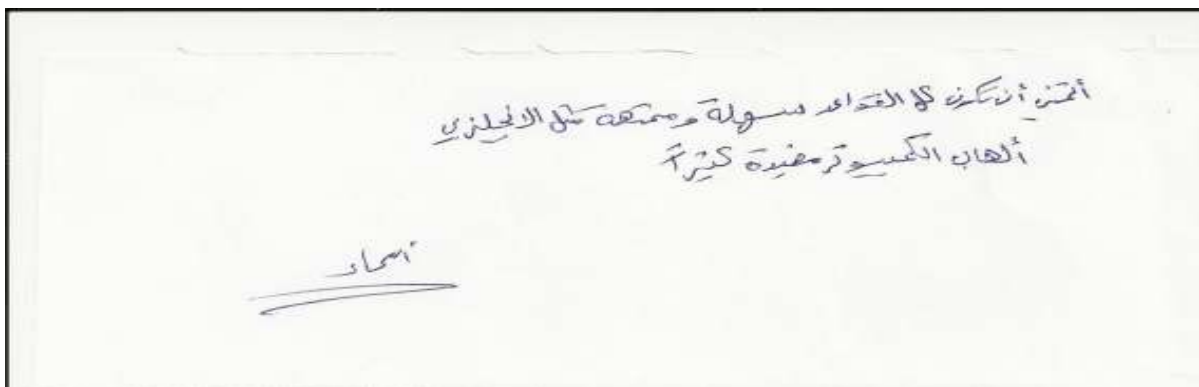 أتمنى أن تكون كل القواعد سهلة وممتعة مثل الانجليزي
ألعاب الكمبيوتر مفيدة كثيراً
أسماء